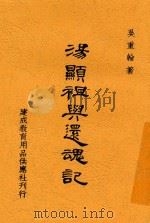 吳重翰著
湯顯祖與還魂記
建成教育用品供應社刊行